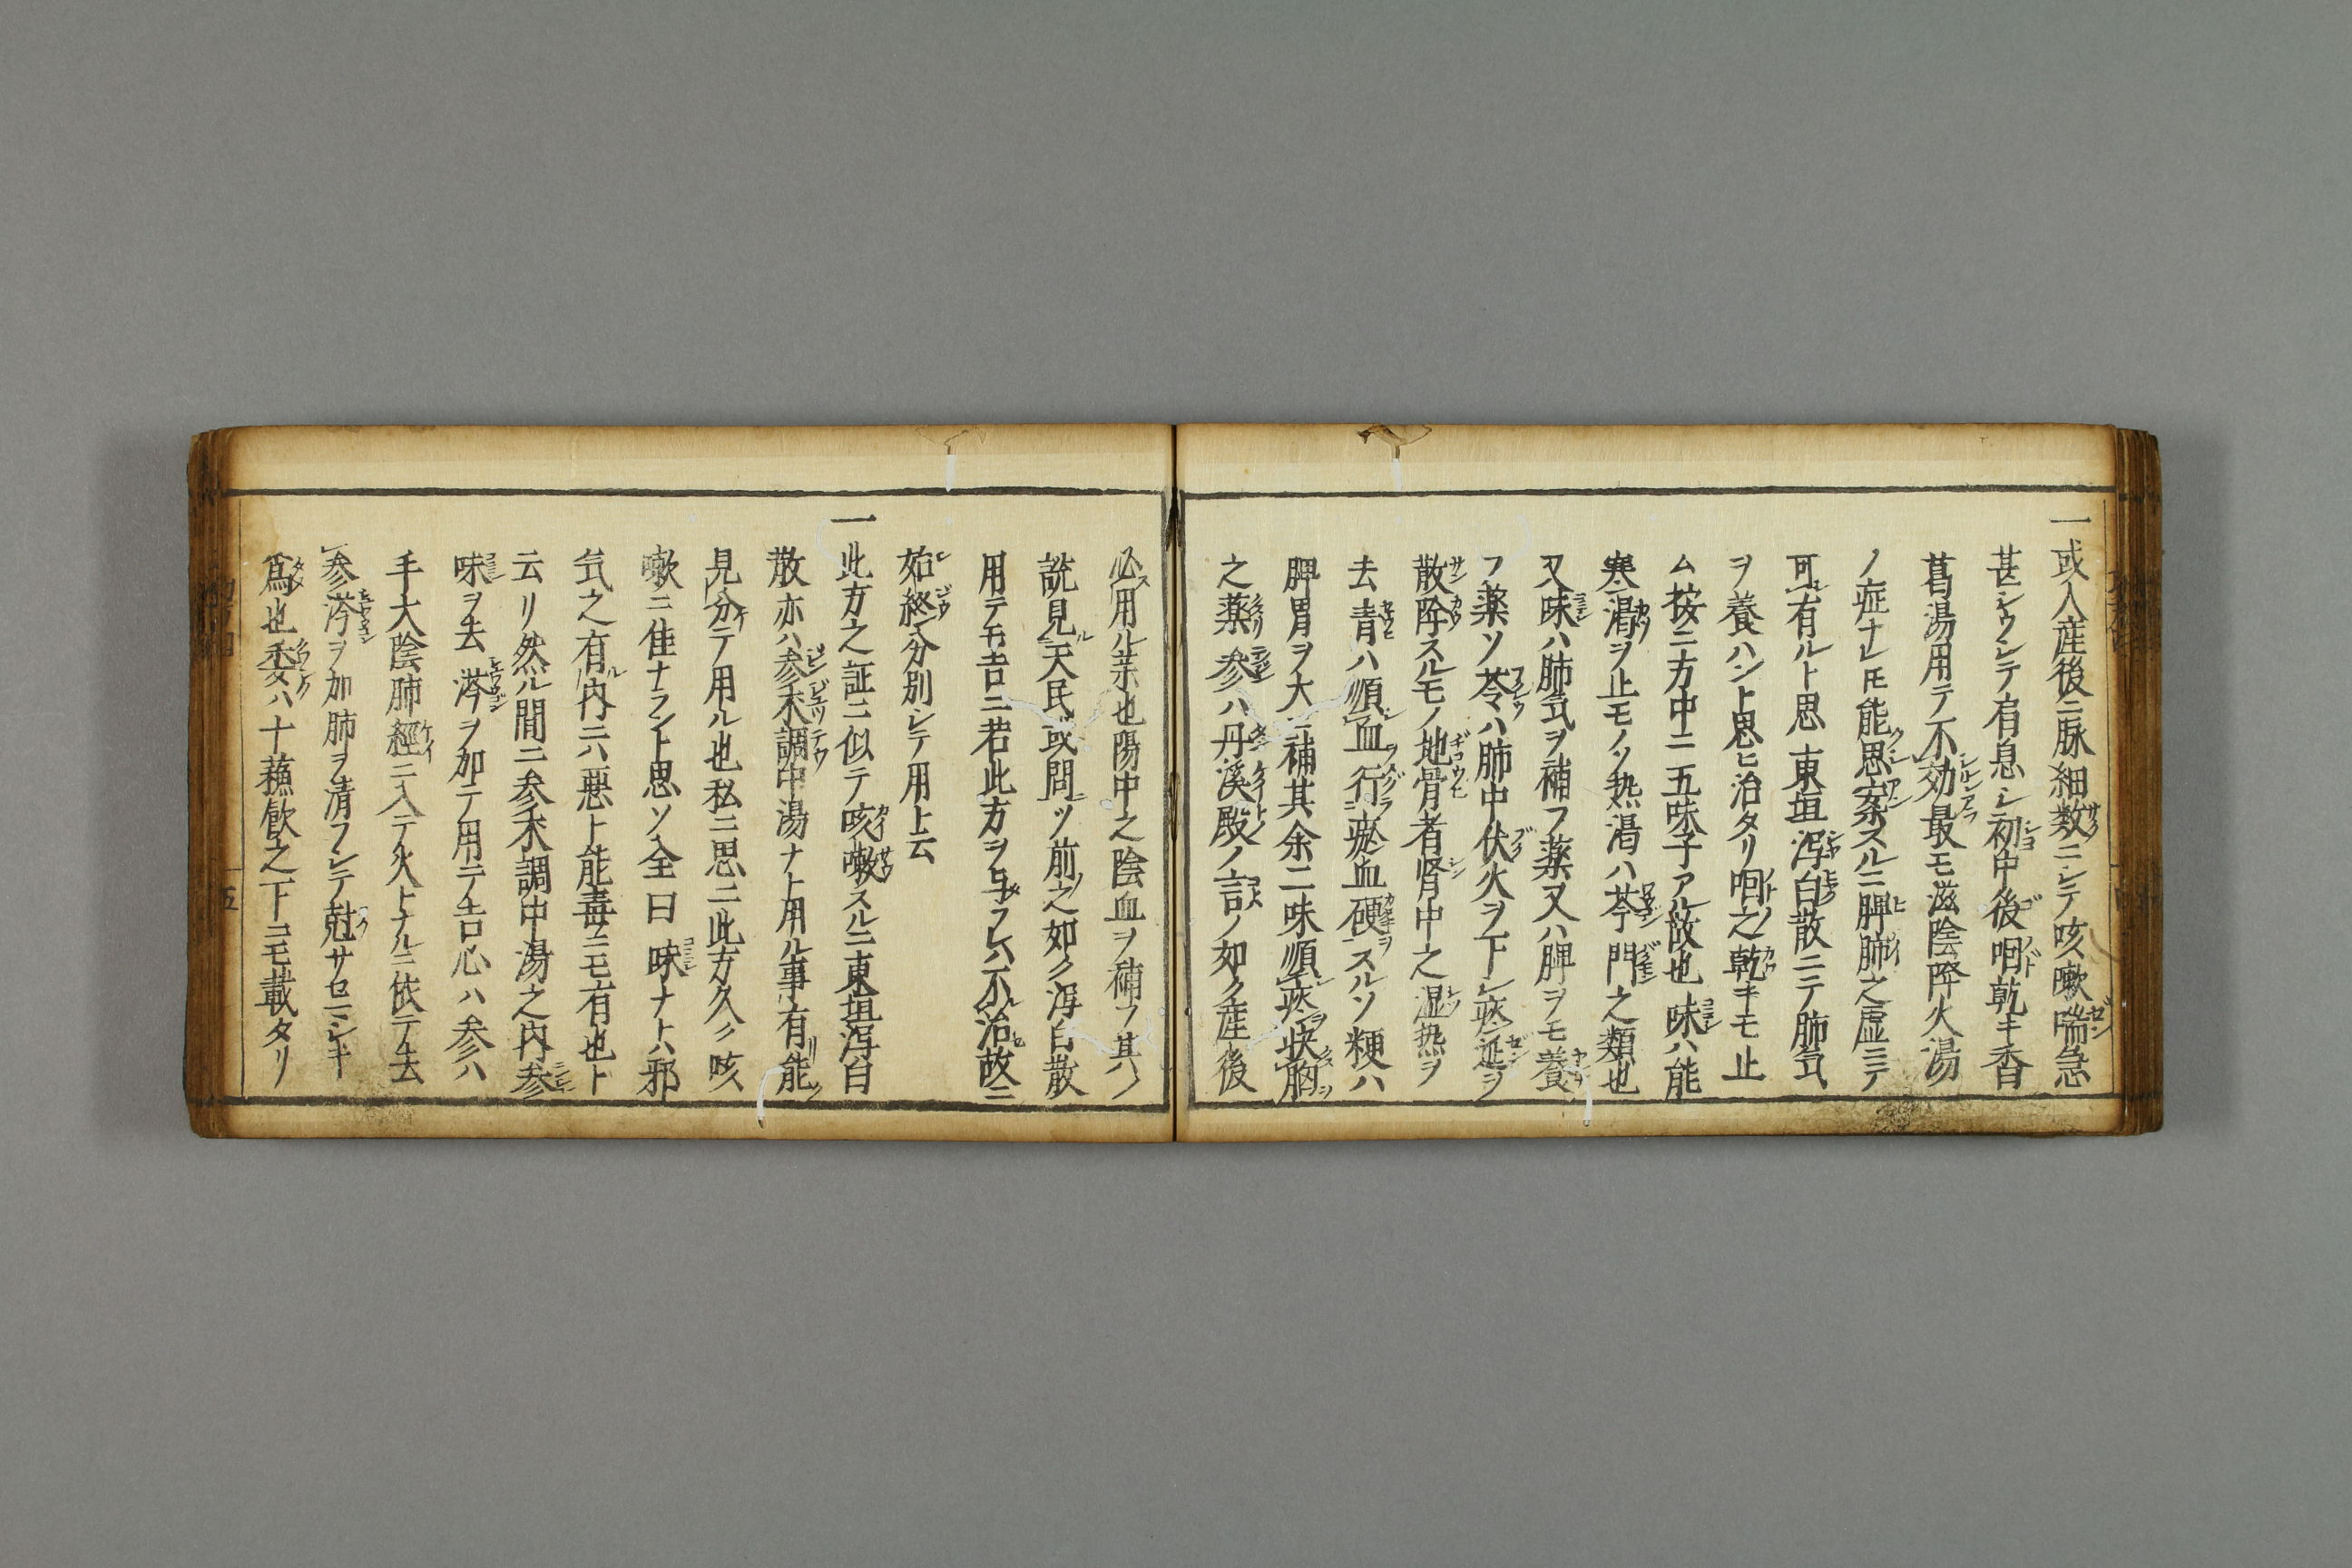 一或人産後ニ脉細数ニシテ咳嗽喘急
甚シウシテ有息シ初中後咽乾キ香
葛湯用テ不効最モ滋陰降火湯
ノ症ナレモ能思案スルニ脾肺之虚ニテ
可有ルト思東垣瀉白散ニテ肺気
ヲ養ハント思ヒ治タリ咽之乾キモ止
ム按ニ方中ニ五味子アル故也味ハ能
寒渇ヲ止モノソ熱渇ハ芩門之類也
又味ハ肺気ヲ補フ薬又ハ脾ヲモ養
フ薬ソ苓ハ肺中伏火ヲ下シ痰涎ヲ
散降スルモノ地骨者腎中之湿熱ヲ
去青ハ順血行瘀血硬スルソ粳ハ
脾胃ヲ大ニ補其余二味順痰快胸
之薬参ハ丹溪殿ノ言ノ如ク産後
必用ル薬也陽中之陰血ヲ補フ其ハ
説見天民或問ソ前之如ク瀉白散
用テモ吉ニ若此方ヲ与フレハ不治故ニ
始終分別シテ用ト云
一此方之証ニ似テ咳嗽スルニ東垣瀉白
散亦ハ参朮調中湯ナト用ル事有能
見分テ用ル也私ニ思ニ此方久ク咳
嗽ニ佳ナラント思ソ全曰味ナトハ邪
気之有内ニハ悪ト能毒ニモ有也ト
云リ然ル間ニ参朮調中湯之内参
味ヲ去涔ヲ加テ用テ吉心ハ参ハ
手大陰肺經ニ入テ火トナルニ依テ去
参涔ヲ加肺ヲ清フシテ尅サセマシキ
為也委ハ十蘓飲之下ニモ載タリ
五